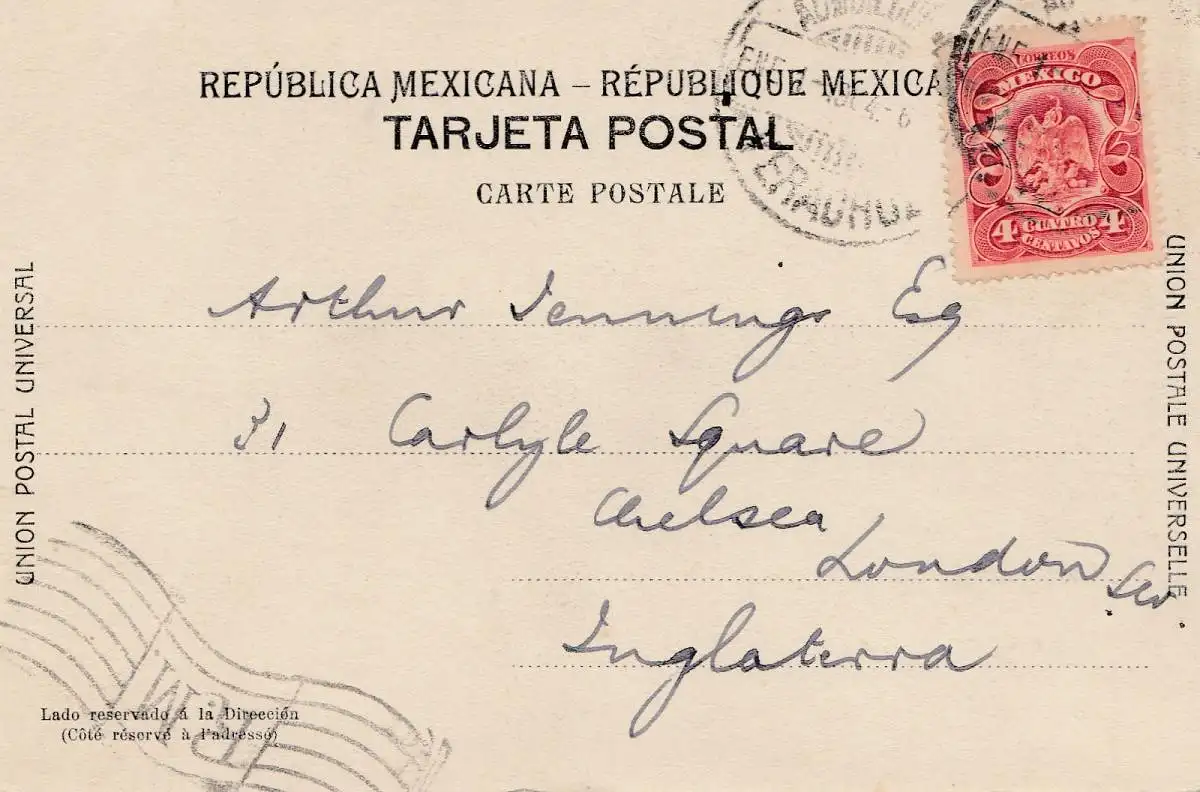 REPÚBLICA MEXICANA – RÉPUBLIQUE MEXICA
TARJETA POSTAL
CARTE POSTALE
VERACRUZ
ENE
CORREOS
MEXICO
4 CUATRO 4
CENTAVOS
UNION POSTAL UNIVERSAL
UNION POSTALE UNIVERSELLE
Arthur Jennings Esq
31 Carlyle Square
Chelsea
London SW
Inglaterra
Lado reservado á la Dirección
(Côté réservé à l'adresse)